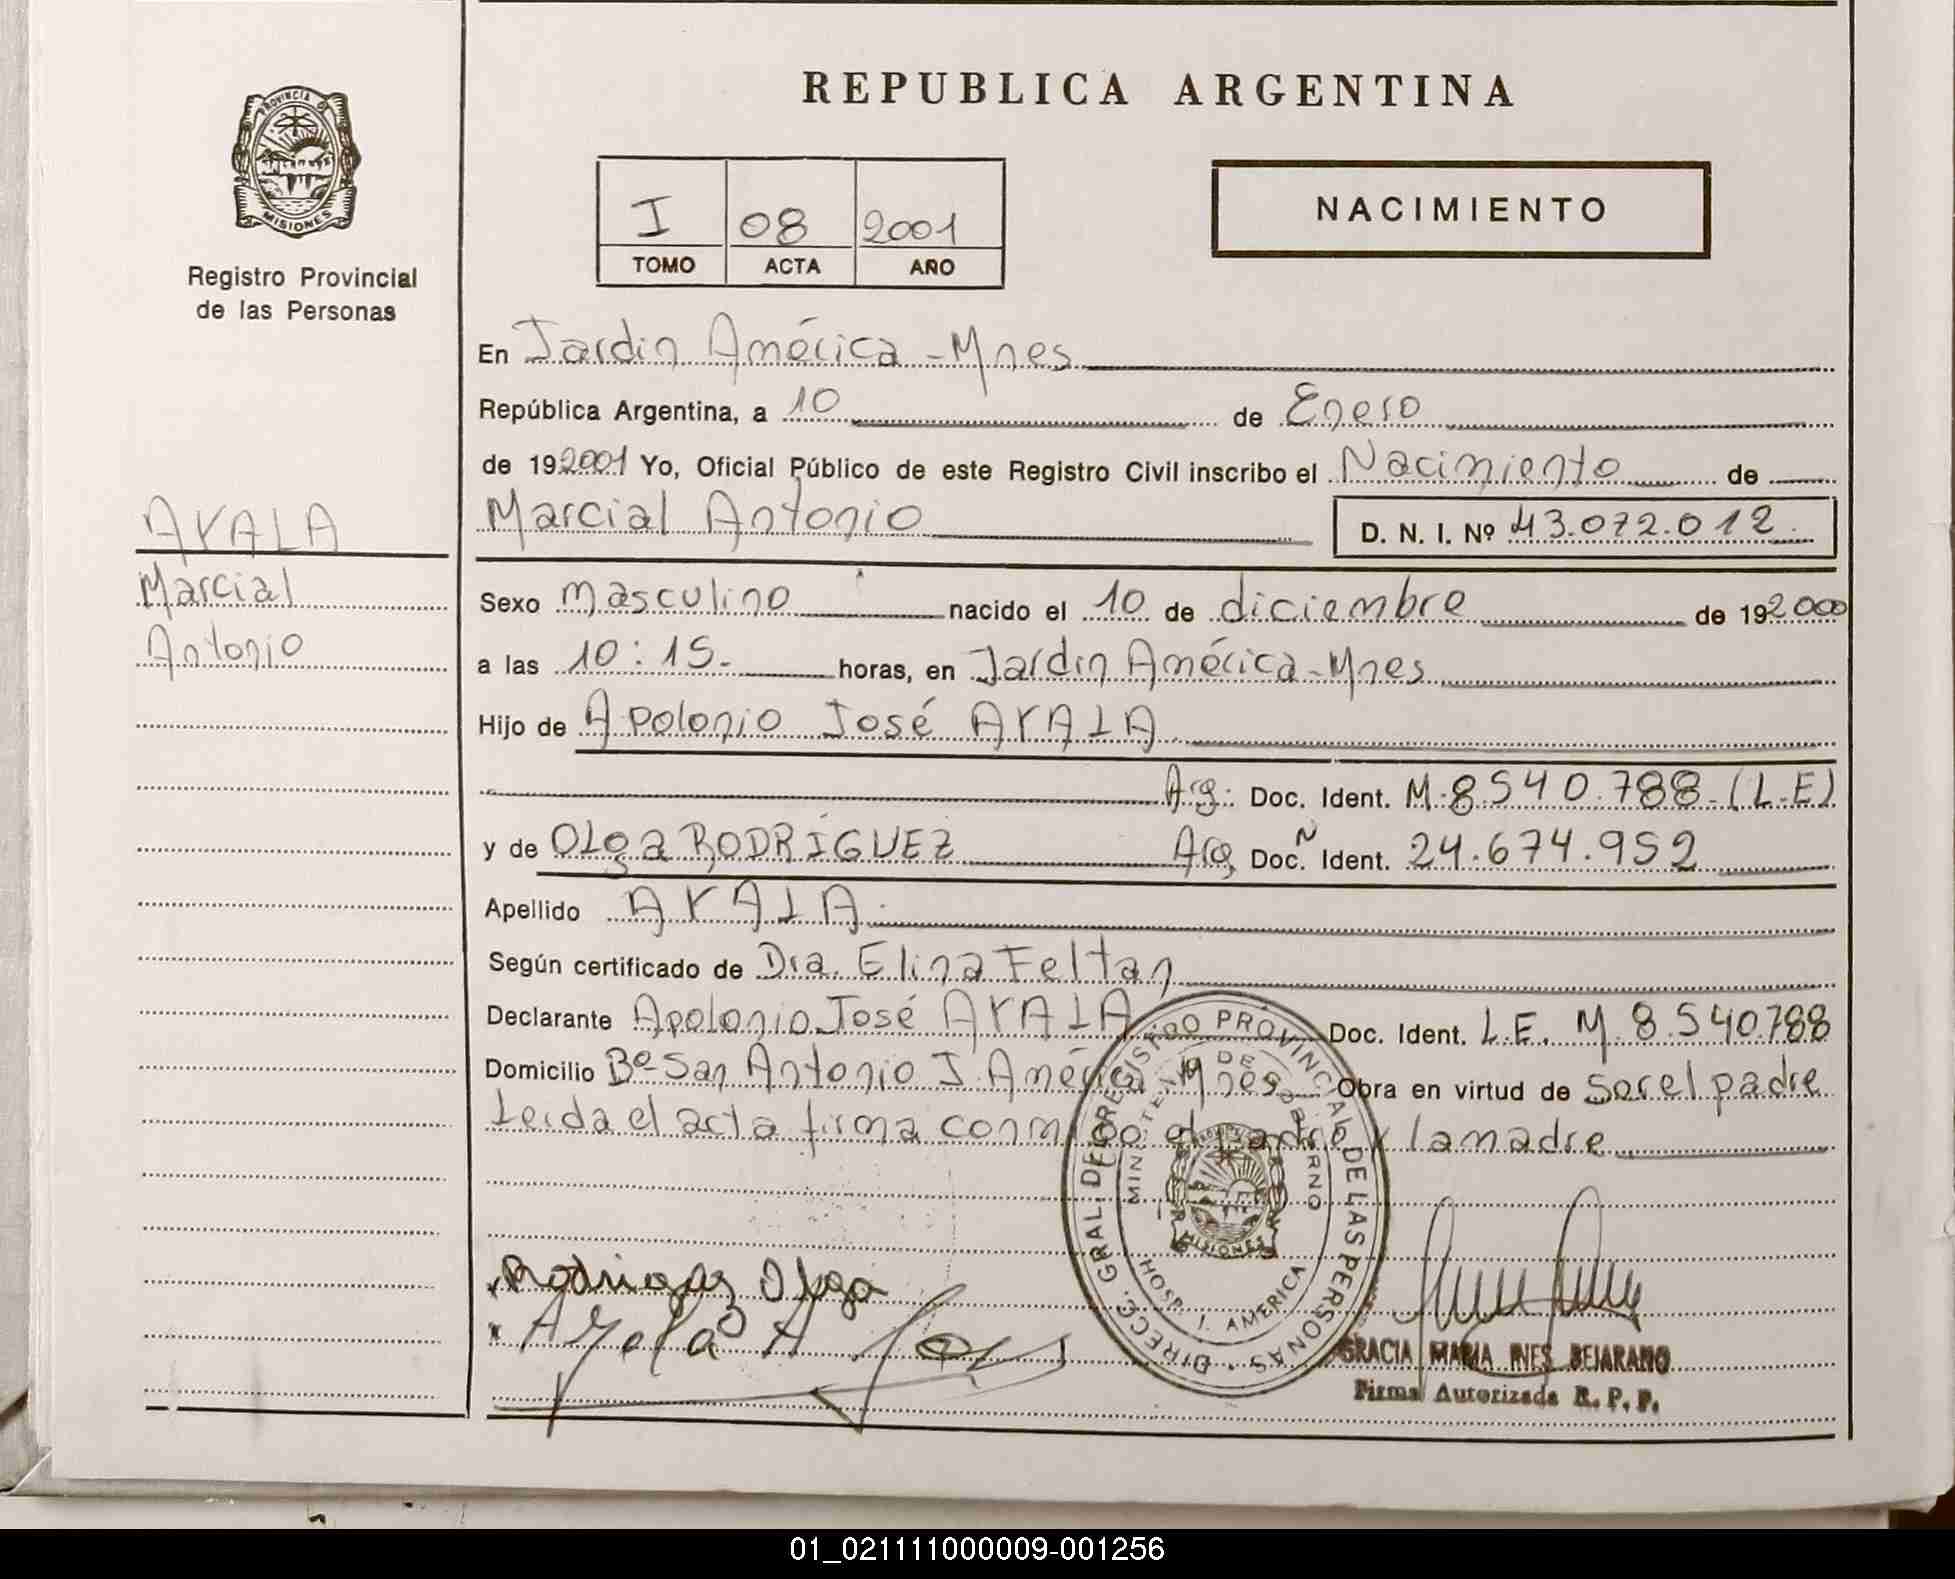 PROVINCIA DE
MISIONES
Registro Provincial
de las Personas
AYALA
Marcial
Antonio
REPUBLICA ARGENTINA
I 08 2001
TOMO ACTA AÑO
NACIMIENTO
En Jardin América - Mnes
República Argentina, a 10 de Enero
de 192001 Yo, Oficial Público de este Registro Civil inscribo el Nacimiento de
Marcial Antonio D. N. I. Nº 43.072.012.
Sexo masculino nacido el 10 de diciembre de 192000
a las 10:15. horas, en Jardin América - Mnes
Hijo de Apolonio José AYALA
Arg. Doc. Ident. M. 8540.788. (L.E)
y de OLga RODRÍGUEZ Arg Doc. Ident. 24.674.952
Apellido AYALA.
Según certificado de Dra. Elina Feltan
Declarante Apolonio José AYALA Doc. Ident. L.E. M. 8.540.788
Domicilio Bº San Antonio J. América Mnes Obra en virtud de ser el padre
Leida el acta firma conmigo el padre y la madre
Rodriguez Olga
Ayala A Jose
DIRECC. GRAL. DE REGISTRO PROVINCIAL DE LAS PERSONAS
MINISTERIO DE GOBIERNO
MISIONES
HOSP. J. AMERICA
GRACIA MARIA INES BEJARANO
Firma Autorizada R. P. P.
01_021111000009-001256